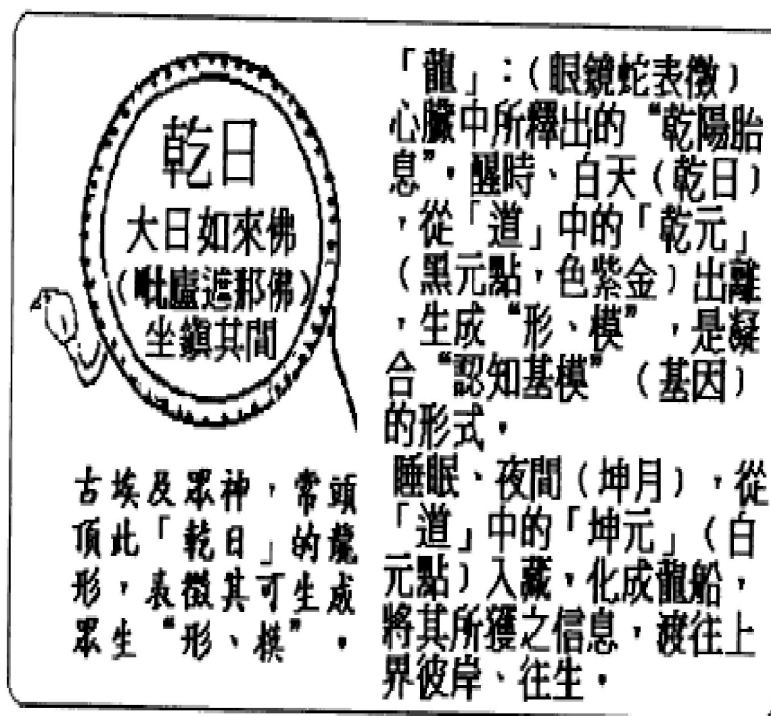 乾日
大日如來佛
(毗廬遮那佛)
坐鎮其間
古埃及眾神，常頭
頂此「乾日」的龍
形，表徵其可生成
眾生“形、模”。
「龍」：(眼鏡蛇表徵)
心臟中所釋出的“乾陽胎
息”，醒時、白天(乾日)
，從「道」中的「乾元」
(黑元點，色紫金)出離
，生成“形、模”，是凝
合“認知基模”(基因)
的形式。
睡眠、夜間(坤月)，從
「道」中的「坤元」(白
元點)入藏，化成龍船，
將其所獲之信息，渡往上
界彼岸、往生。